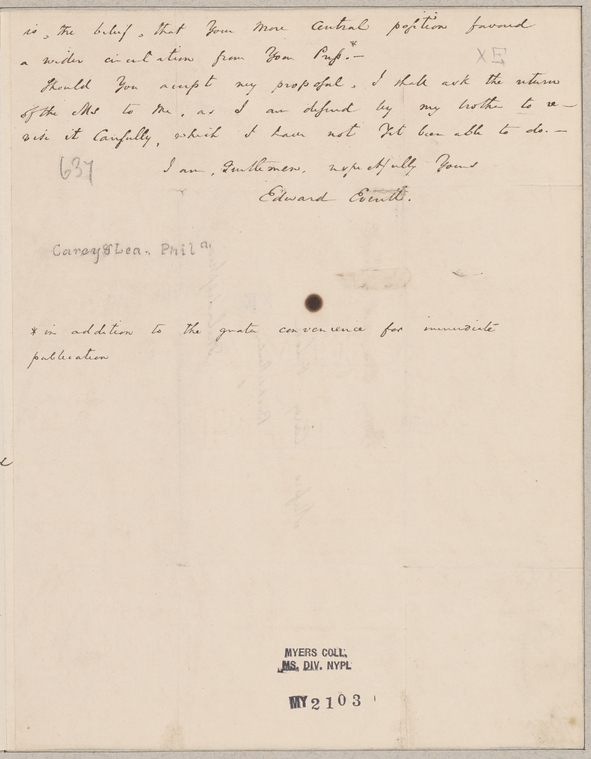 is, the belief, that your more central position favored
a wider circulation from your Press.*—
Should you accept my proposal, I shall ask the return
of the Ms to me, as I am desired by my brother to re-
vise it carefully, which I have not yet been able to do.—
I am, Gentlemen, respectfully Yours
637
Edward Everett.
Carey & Lea. Phila
* in addition to the greater convenience for immediate
publication
MYERS COLL.
MS. DIV. NYPL
MY 2103